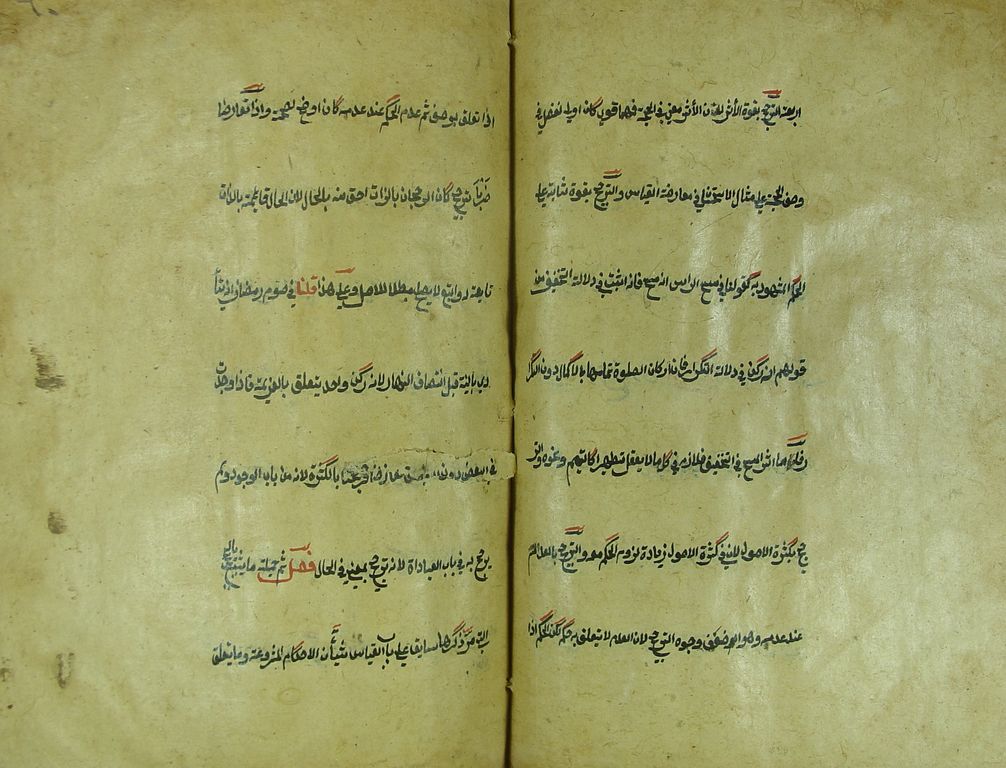 اربعة الترجيح بقوة الأثر لان الأثر معنى في الحجة فمهما قوى كان اولى لفضل في
وصف الحجة على مثال الاستحسان في معارضة القياس والترجيح بقوة ثباته على
الحكم المشهود به كقولنا في مسح الراس انه مسح فانه اثبت في دلالة التخفيف من
قولهم انه ركن في دلالة التكرار فان اركان الصلوة تمامها بالاكمال دون التكرار
فاما اثر المسح في التخفيف فلازم في كل ما لا يعقل تطهيرا كالتيمم ونحوه والتر
جيح بكثرة الاصول لان في كثرة الاصول زيادة لزوم الحكم معه والترجيح بالعدم
عند عدمه وهو اضعف وجوه الترجيح لان العدم لا يتعلق به حكم لكن الحكم اذا
اذا تعلق بوصف ثم عدم الحكم عند عدمه كان اوضح لصحته واذا تعارضا
ضربا ترجيح كان الرجحان بالذات احق منه بالحال لان الحال قائمة بالذات
تابعة له والتبع لا يصلح مبطلا للاصل وعلى هذا قلنا في صوم رمضان انه يتأ
دى بالنية قبل انتصاف النهار لانه ركن واحد يتعلق بالعزيمة فاذا وجدت
في البعض دون البعض تعارضا فرجحنا بالكثرة لانه من باب الوجود ولم
يرجح به في باب العبادات لانه ترجيح بمعنى في الحال فصل ثم جملة ما يثبت بالحجج
التي مر ذكرها سابقا على باب القياس شيئان الاحكام المشروعة وما يتعلق